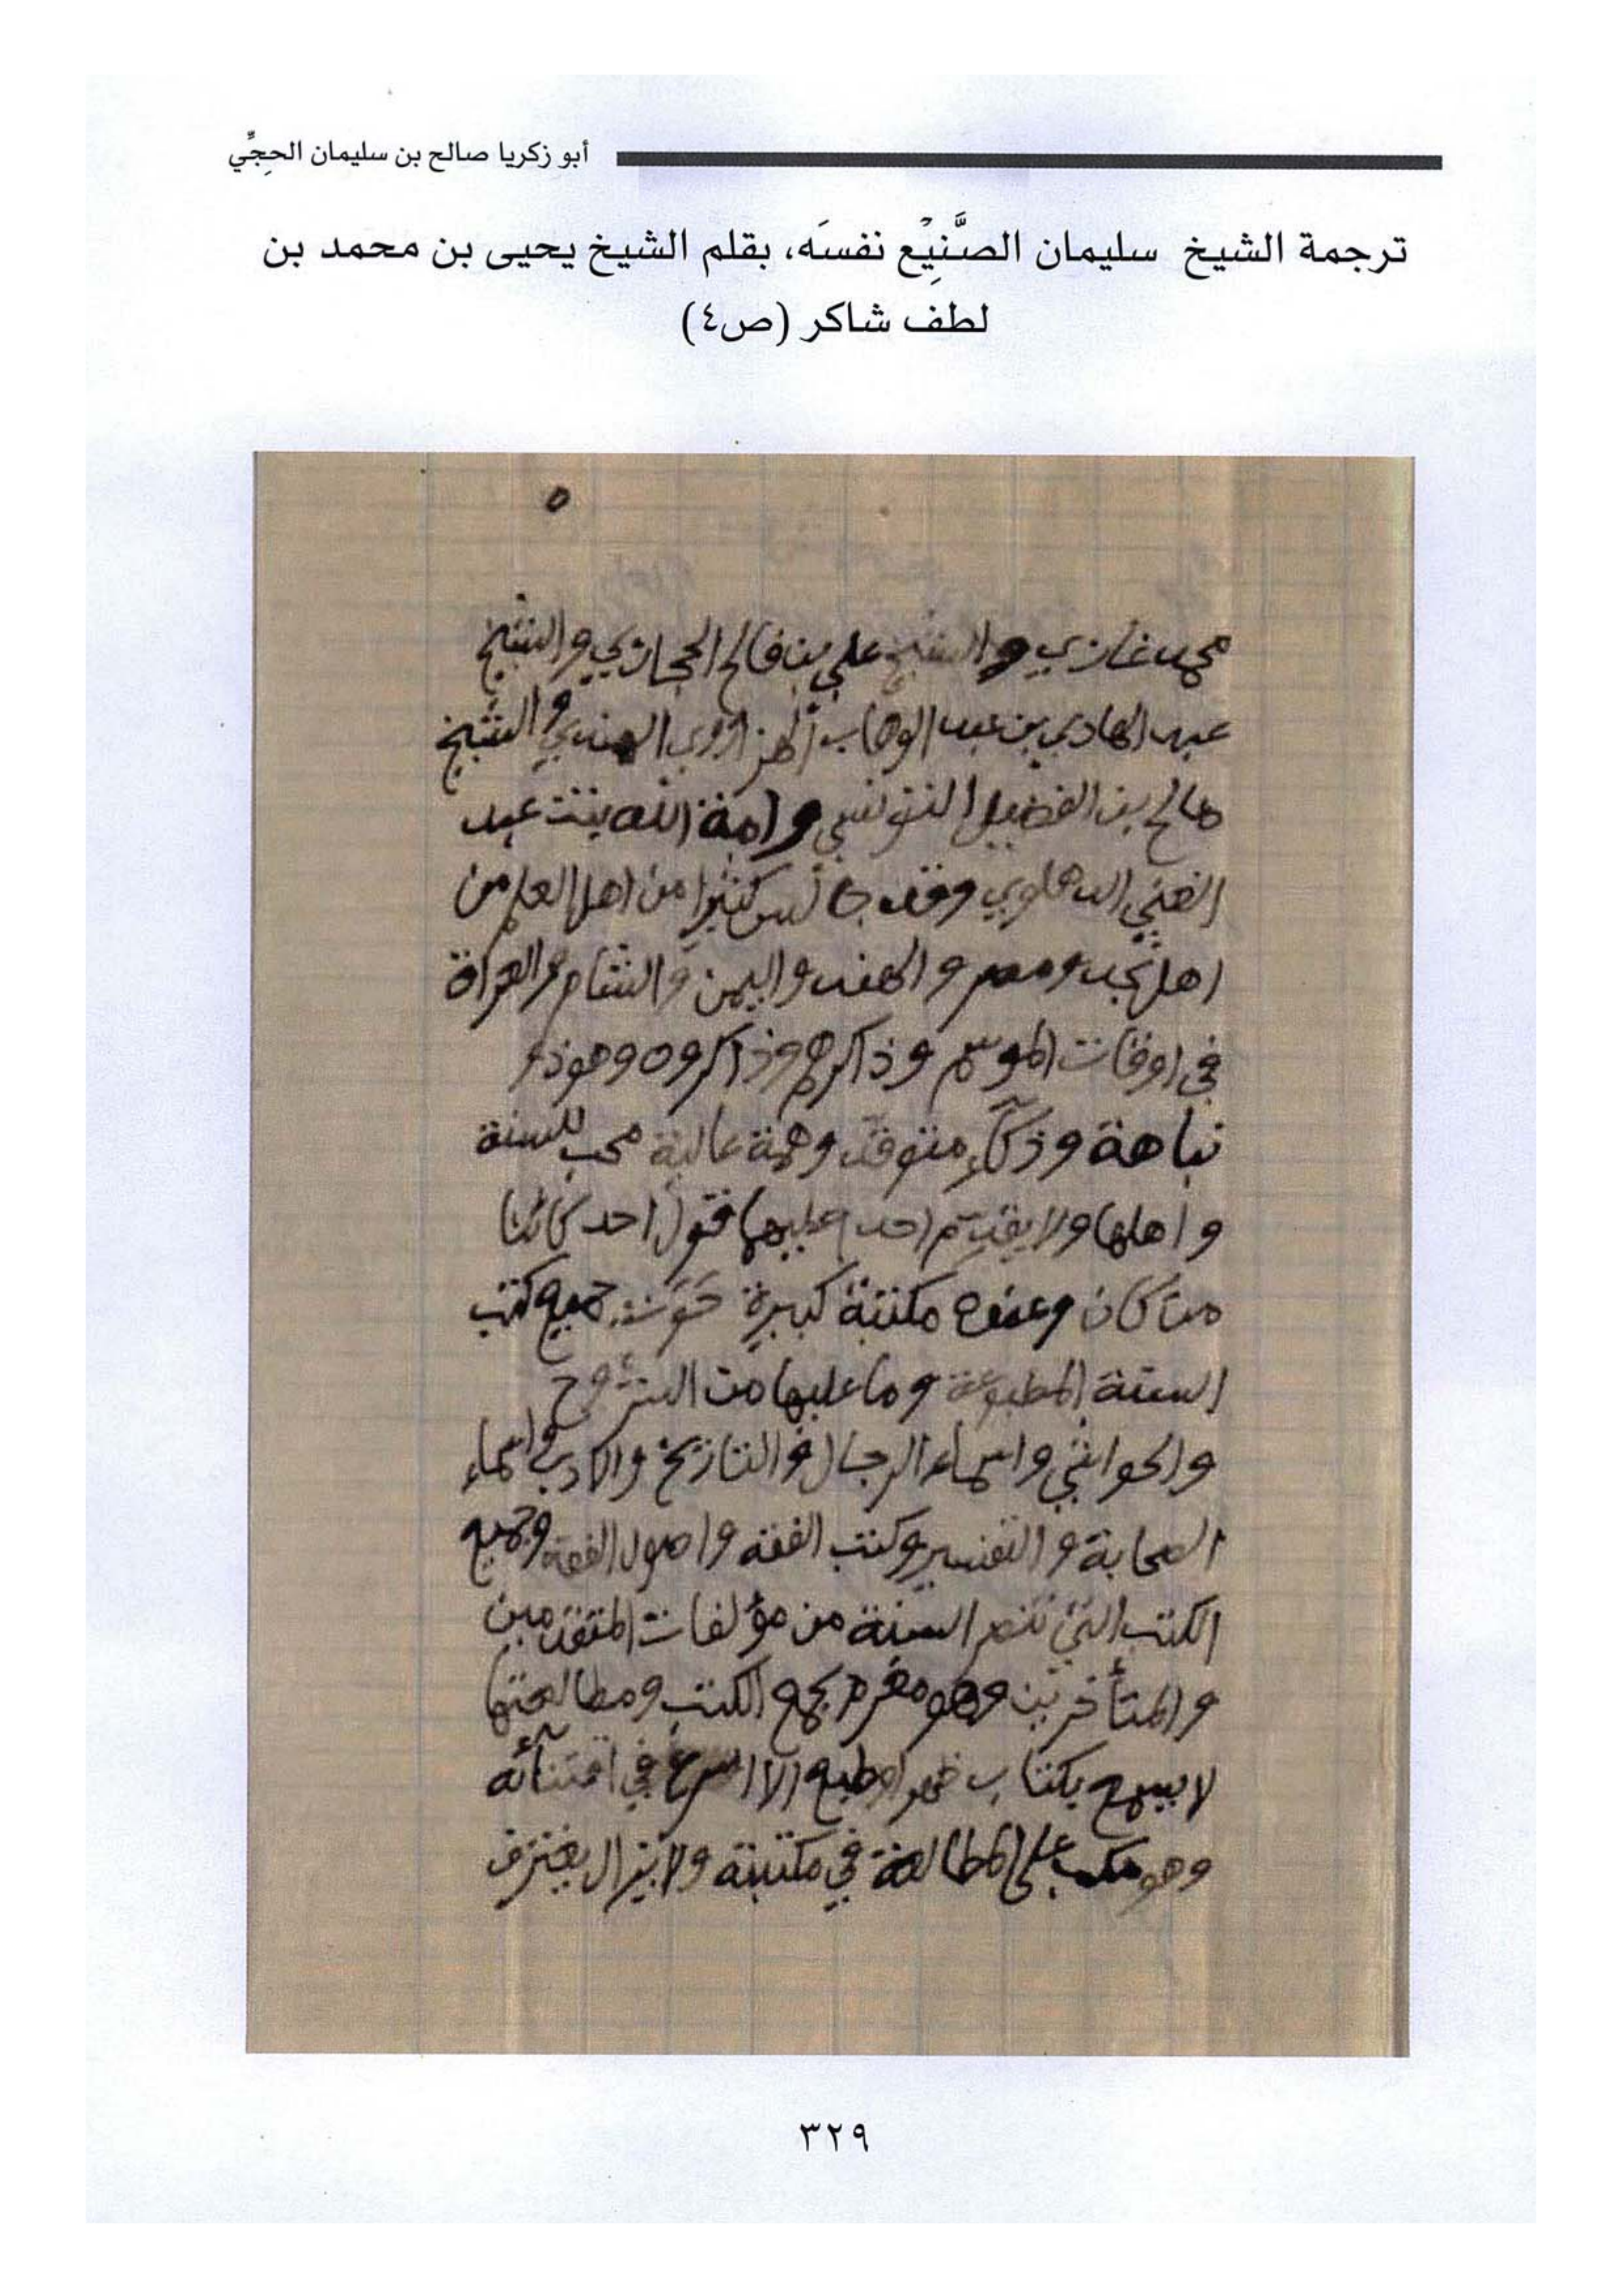 أبو زكريا صالح بن سليمان الحجِّي
ترجمة الشيخ سليمان الصَّنِيْع نفسَه، بقلم الشيخ يحيى بن محمد بن
لطف شاكر (ص٤)
٥
محمد غازي والشيخ علي بن فالح الحجازي والشيخ
عبد الهادي بن عبد الوهاب الهزاروي الهندي والشيخ
صالح بن الفضيل التونسي وامة الله بنت عبد
الغني الدهلوي وقد جالس كثيرا من اهل العلم من
اهل نجد ومصر والهند واليمن والشام والعراق
في اوقات الموسم وذاكرهم وذاكروه وهو ذو
نباهة وذكآء متوقد وهمة عالية محب للسنة
واهلها ولا يقدم احد عليها قول احد كائنا
من كان وعنده مكتبة كبيرة حَوَت جميع كتب
السنة المطبوعة وما عليها من الشروح
والحواشي واسماء الرجال والتاريخ والادب واسماء
الصحابة والتفسير وكتب الفقه واصول الفقه وجميع
الكتب التي تنصر السنة من مؤلفات المتقدمين
والمتأخرين وهو مغرم بجمع الكتب ومطالعتها
لا يسمع بكتاب ظهر او طبع الا اسرع في اقتنآئه
وهو مكب على المطالعة في مكتبته ولا يزال يغترف
٣٢٩